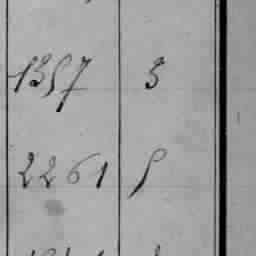 1357 3
2261 5